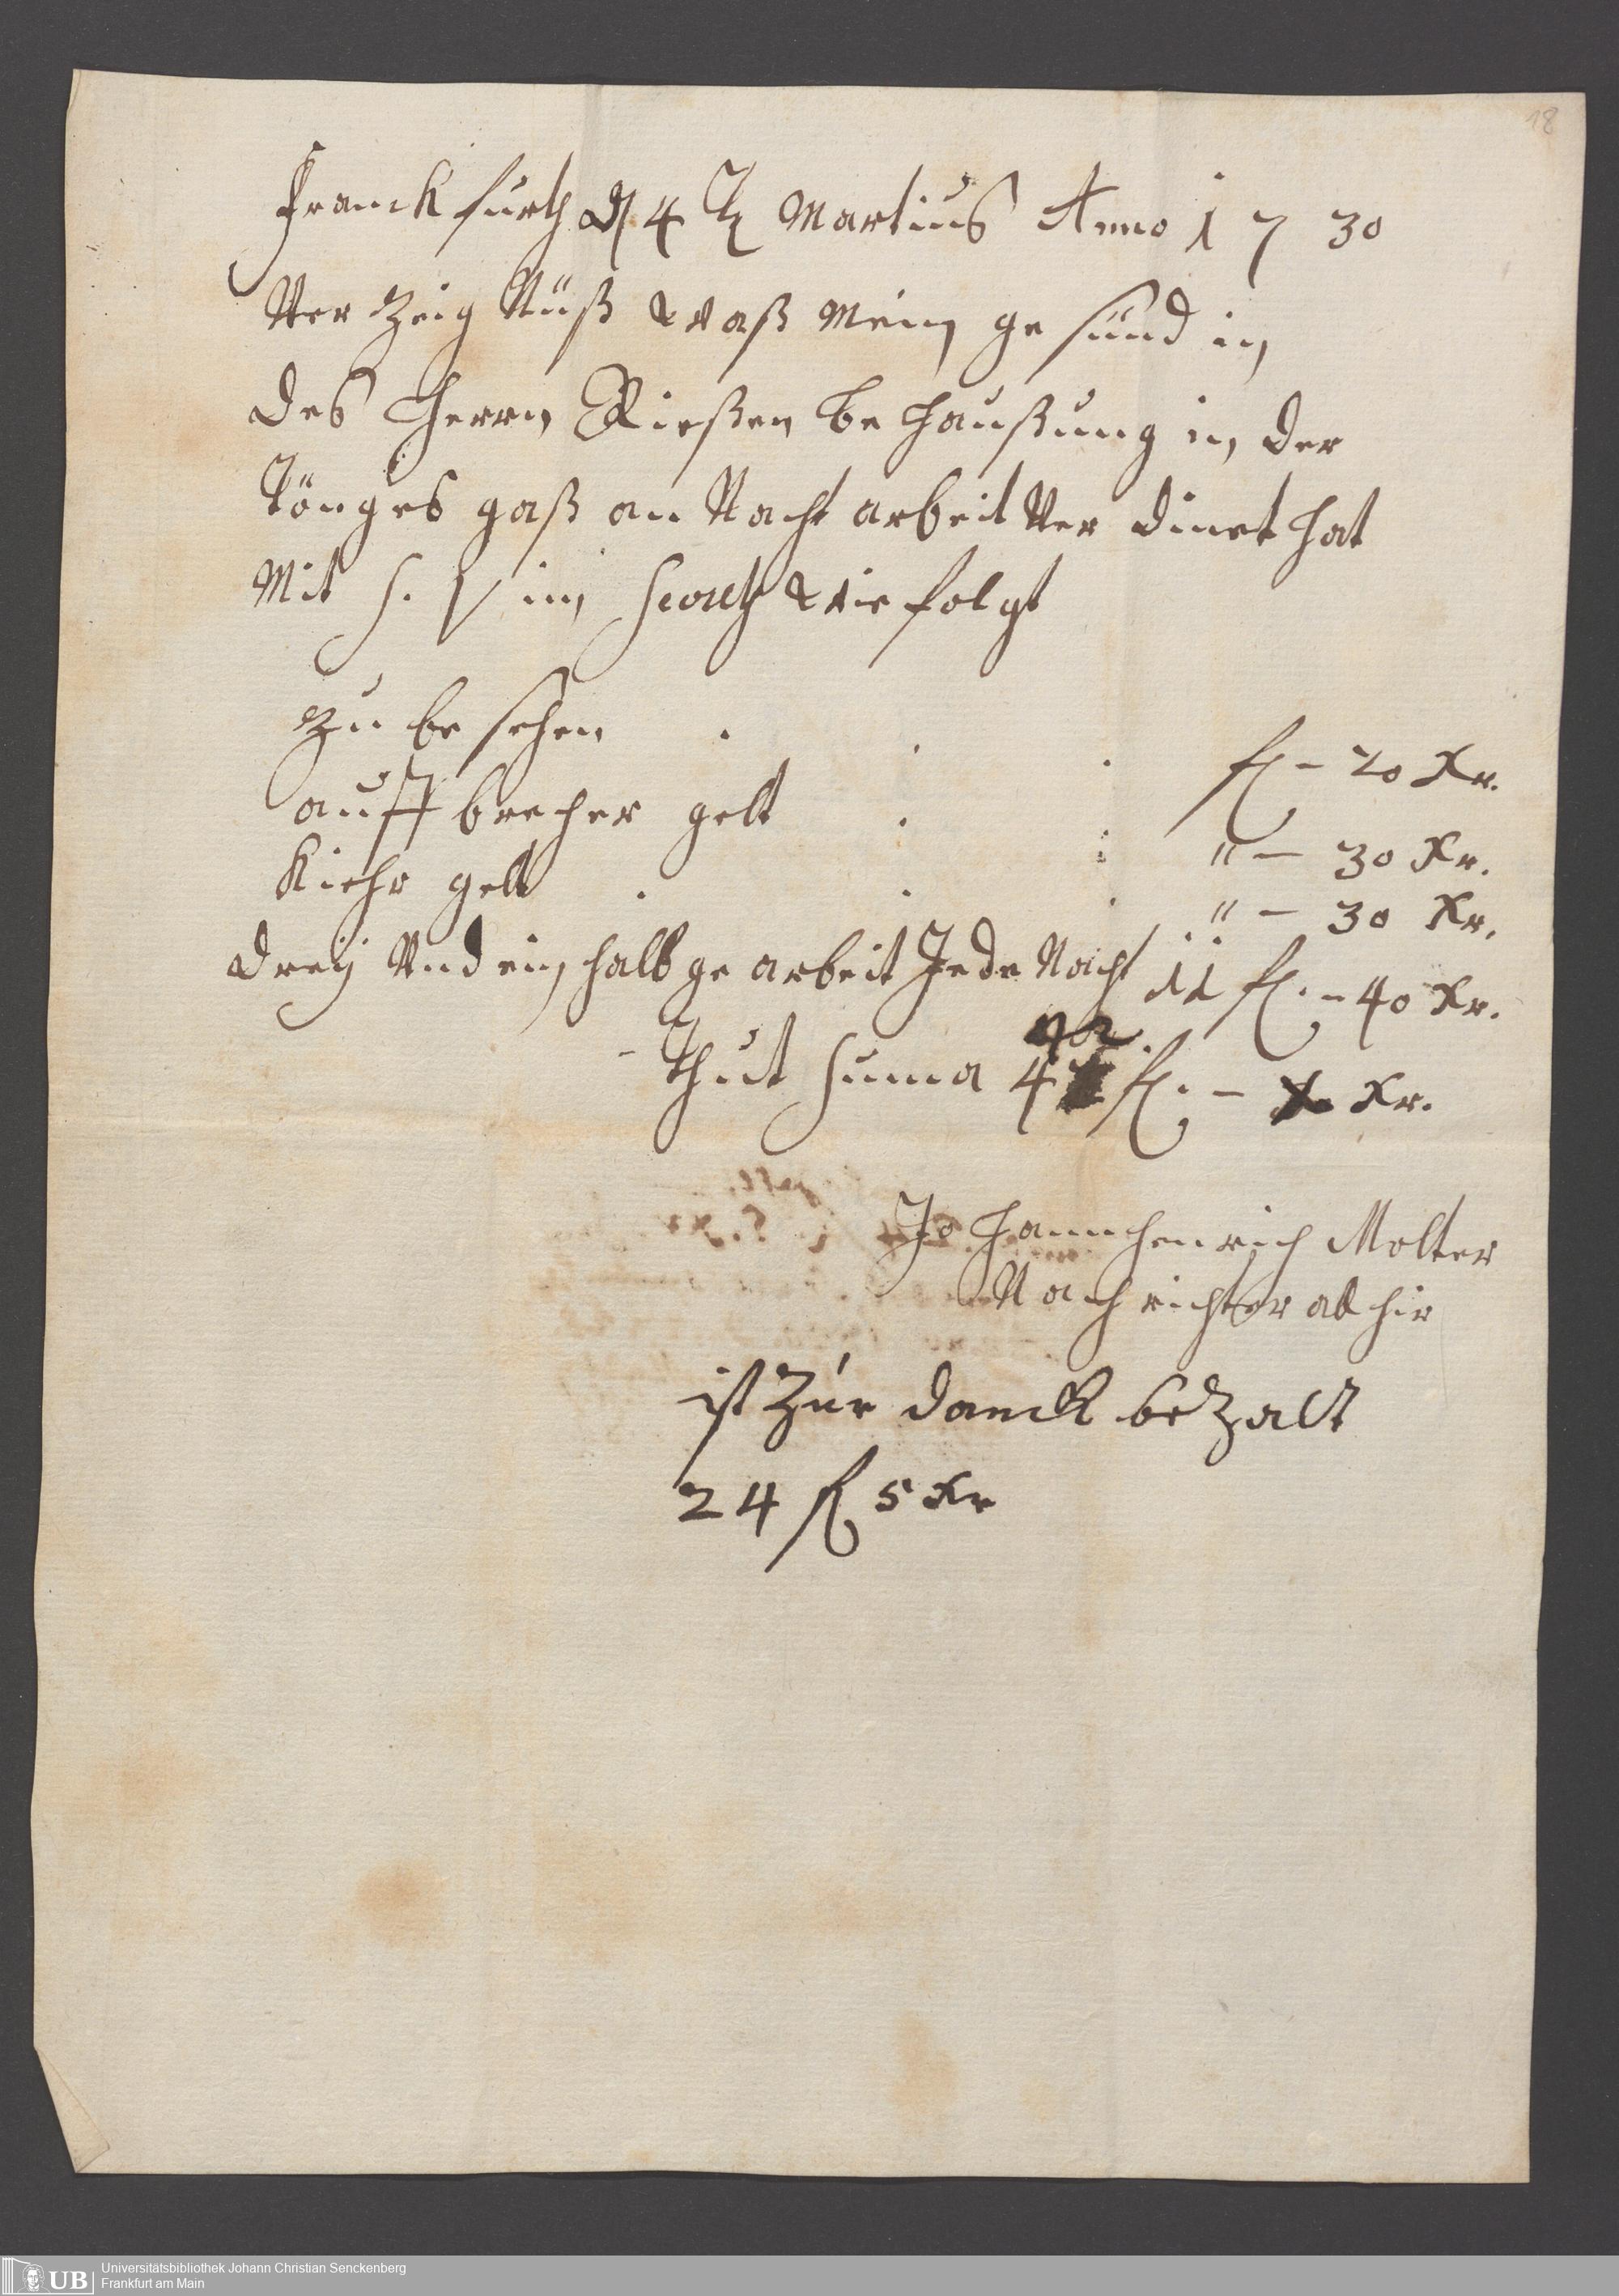 18
Franckfurth d 4 t Martius Anno 1730
Ver Zeig Nüß waß Mein ge sünd in
des Herrn Rießen be Haußung in der
Tönges gaß an Nacht arbeit Ver dinet hat
Mit S. V im wie folgt
Zu be sehen . . . fl - 20 Kr.
auff brecher gelt . . " - 30 Kr.
Kiehr gelt . . . " - 30 Kr.
dreÿ Und ein halb ge arbeit Jede Nacht 11 fl. - 40 Kr.
Thut Suma 42 fl. - Kr.
Johann henrich Molter
Nach richter al hir
ist Zur danck bezalt
24 fl 5 Kr
UB Universitätsbibliothek Johann Christian Senckenberg
Frankfurt am Main